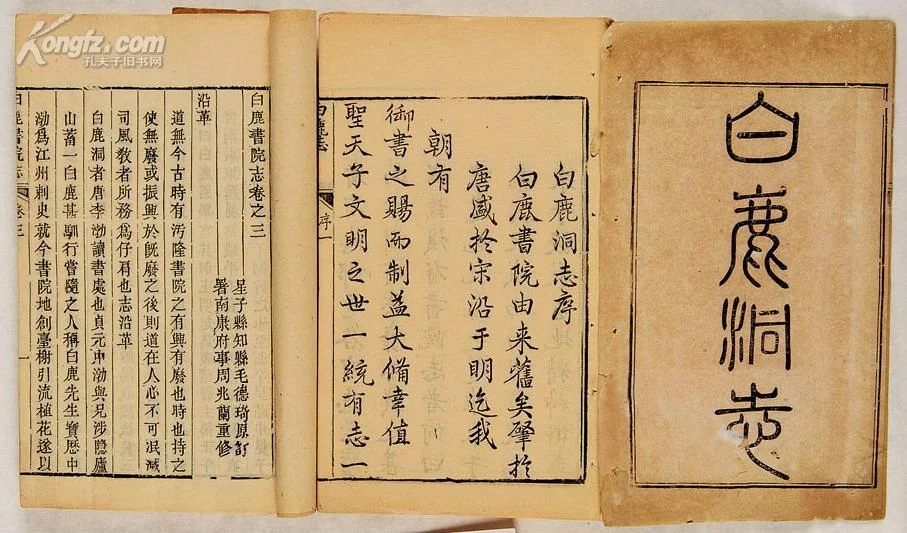 白鹿洞志
白鹿洞志序
白鹿書院由来舊矣肇扵
唐盛扵宋沿于明迄我
朝有
御書之賜而制益大備幸值
聖天子文明之世一統有志一
白鹿志
序一
白鹿書院志卷之三
星子縣知縣毛德琦原訂
署南康府事周兆蘭重修
沿革
道無今古時有汚隆書院之有興有廢也時也持之
使無廢或振興於旣廢之後則道在人心不可泯滅
司風敎者所務爲仔肩也志沿革
白鹿洞者唐李渤讀書處也貞元中渤與兄涉隱廬
山蓄一白鹿甚馴行嘗隨之人稱白鹿先生寶歷中
渤爲江州刺史就今書院地創臺榭引流植花遂以
白鹿書院志
卷三
一
Kongfz.com
孔夫子旧书网